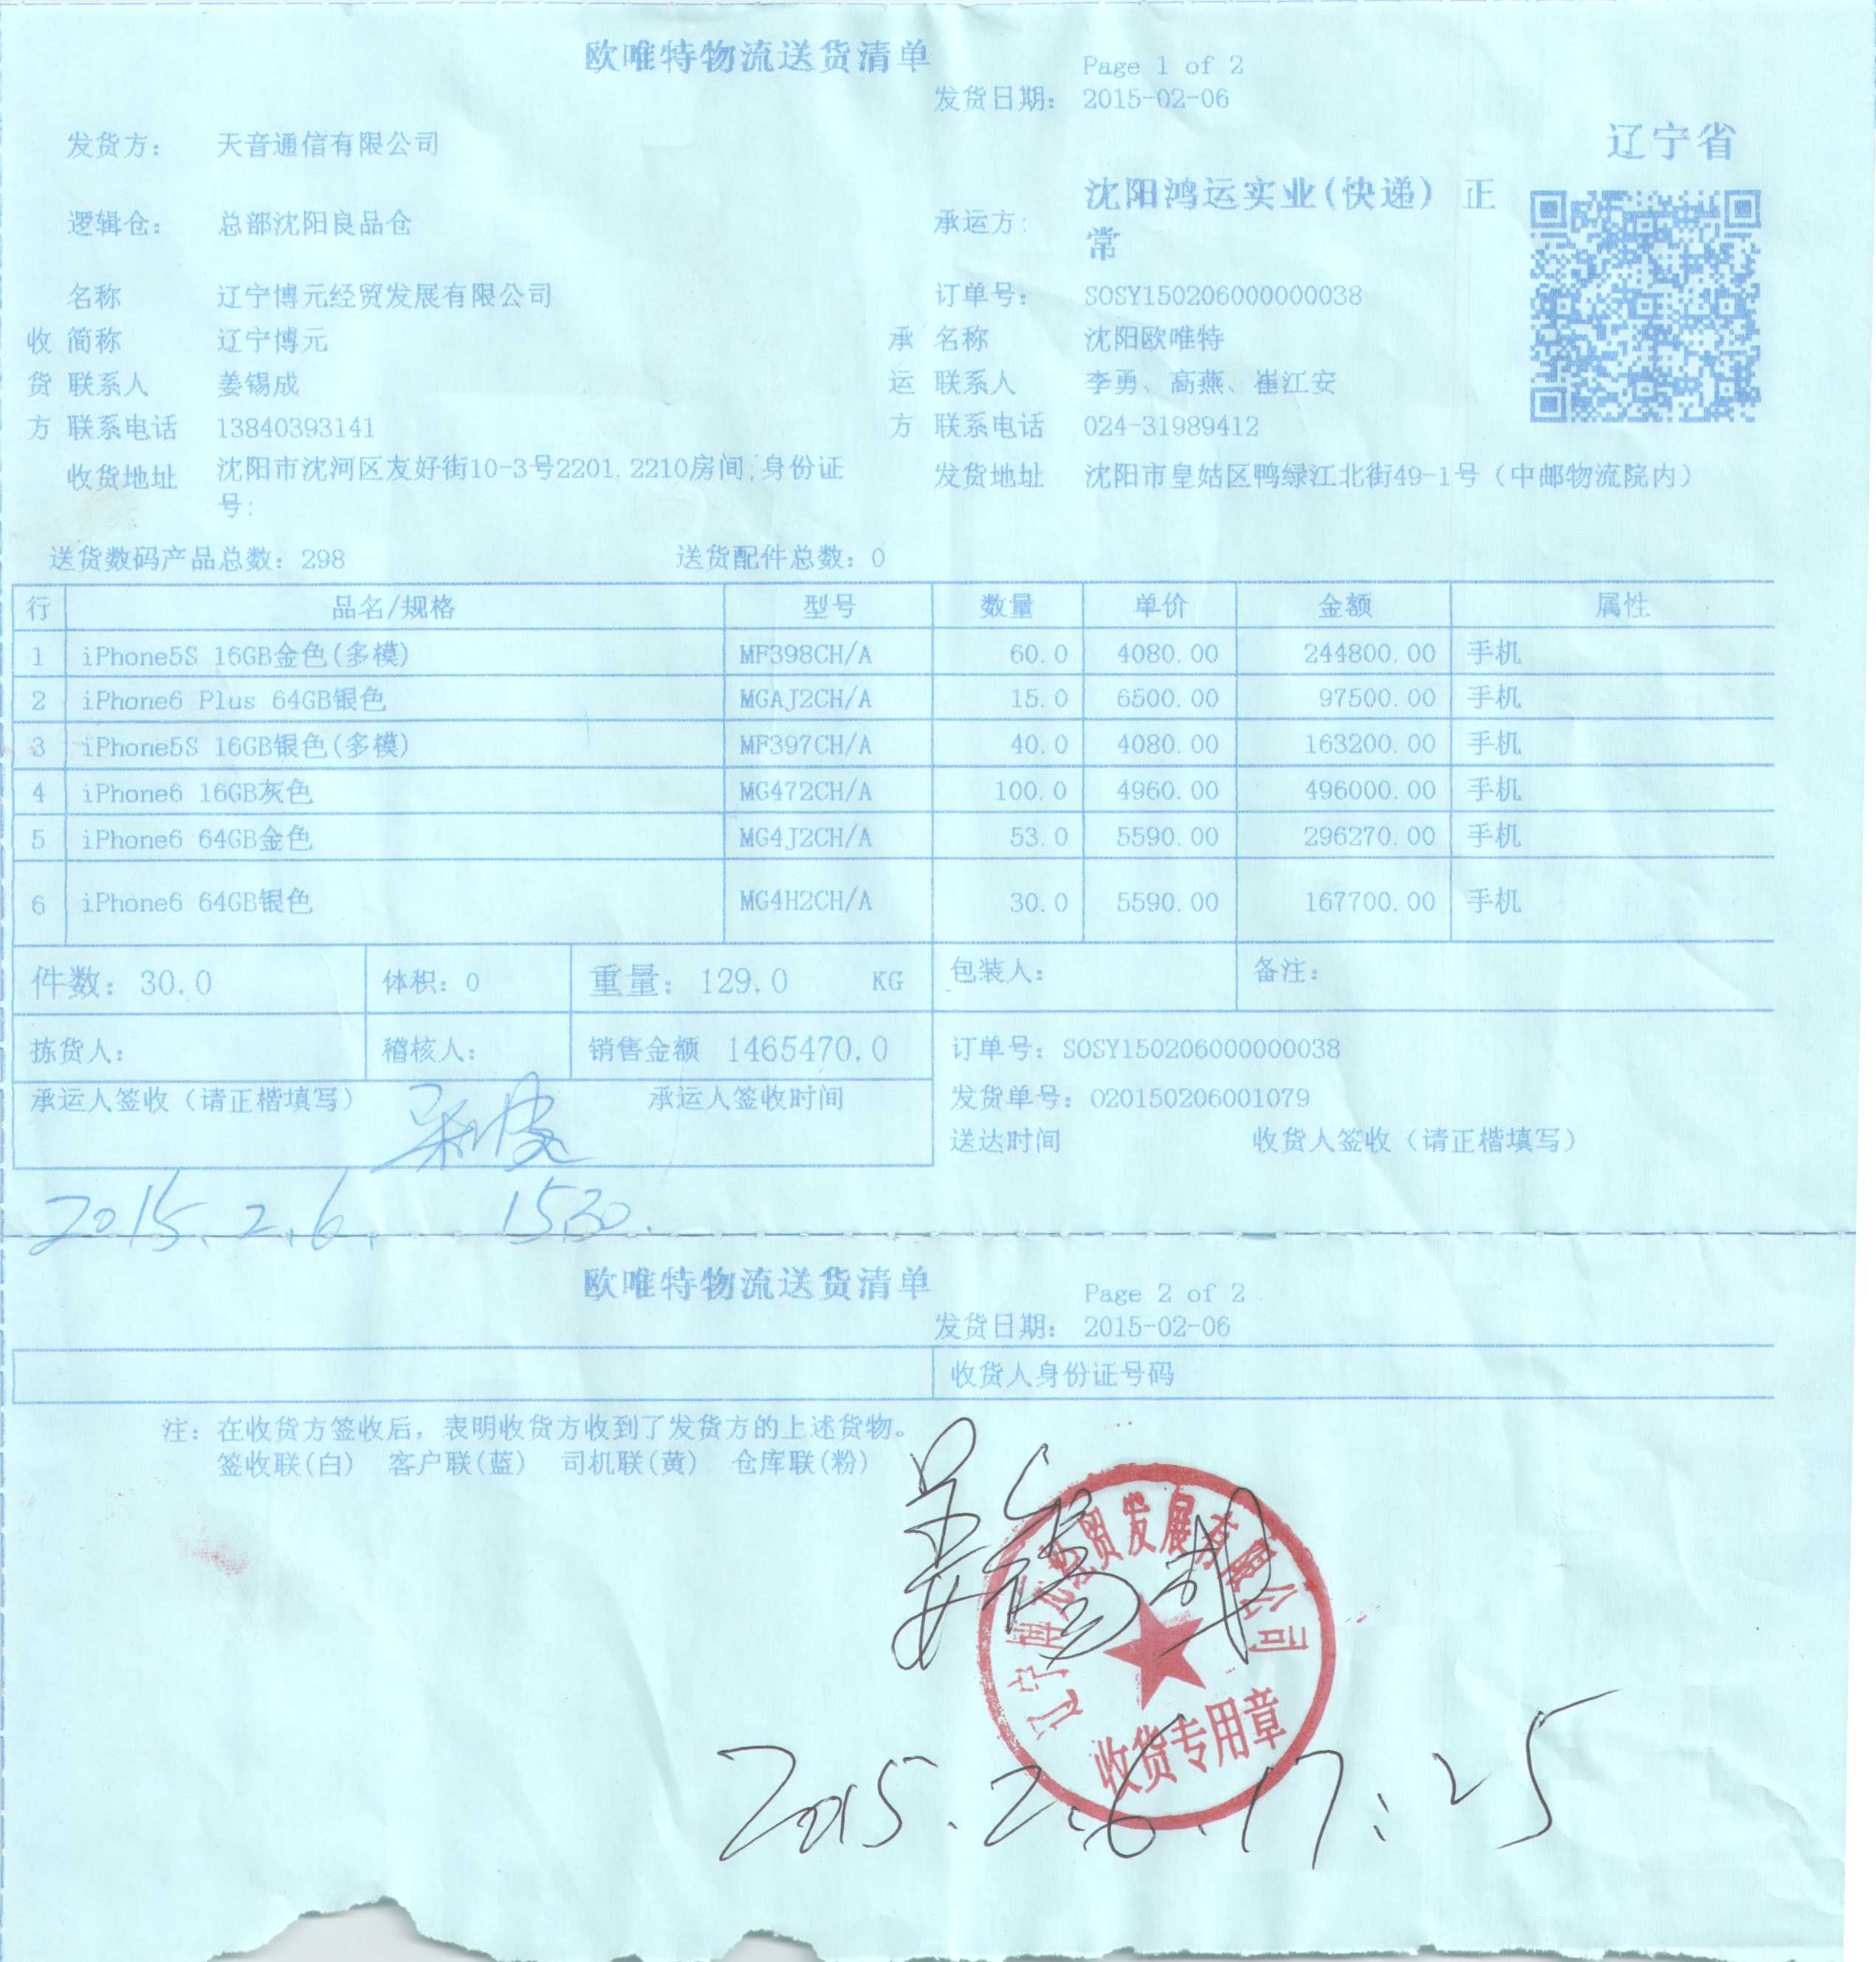 欧唯特物流送货清单
Page 1 of 2
发货日期: 2015-02-06
发货方: 天音通信有限公司
辽宁省
逻辑仓: 总部沈阳良品仓
承运方: 沈阳鸿运实业(快递) 正
常
名称 辽宁博元经贸发展有限公司 订单号: SOSY150206000000038
收 简称 辽宁博元 承 名称 沈阳欧唯特
货 联系人 姜锡成 运 联系人 李勇、高燕、崔江安
方 联系电话 13840393141 方 联系电话 024-31989412
收货地址 沈阳市沈河区友好街10-3号2201.2210房间,身份证
号:
发货地址 沈阳市皇姑区鸭绿江北街49-1号(中邮物流院内)
送货数码产品总数: 298 送货配件总数: 0
行 品名/规格 型号 数量 单价 金额 属性
1 iPhone5S 16GB金色(多模) MF398CH/A 60.0 4080.00 244800.00 手机
2 iPhone6 Plus 64GB银色 MGAJ2CH/A 15.0 6500.00 97500.00 手机
3 iPhone5S 16GB银色(多模) MF397CH/A 40.0 4080.00 163200.00 手机
4 iPhone6 16GB灰色 MG472CH/A 100.0 4960.00 496000.00 手机
5 iPhone6 64GB金色 MG4J2CH/A 53.0 5590.00 296270.00 手机
6 iPhone6 64GB银色 MG4H2CH/A 30.0 5590.00 167700.00 手机
件数: 30.0 体积: 0 重量: 129.0 KG 包装人: 备注:
拣货人: 稽核人: 销售金额 1465470.0 订单号: SOSY150206000000038
承运人签收(请正楷填写) 承运人签收时间 发货单号: O20150206001079
送达时间 收货人签收(请正楷填写)
2015.2.6. 15:30.
欧唯特物流送货清单
Page 2 of 2
发货日期: 2015-02-06
收货人身份证号码
注: 在收货方签收后, 表明收货方收到了发货方的上述货物。
签收联(白) 客户联(蓝) 司机联(黄) 仓库联(粉)
姜锡成
辽宁博元经贸发展有限公司
收货专用章
2015.2.6.17:25